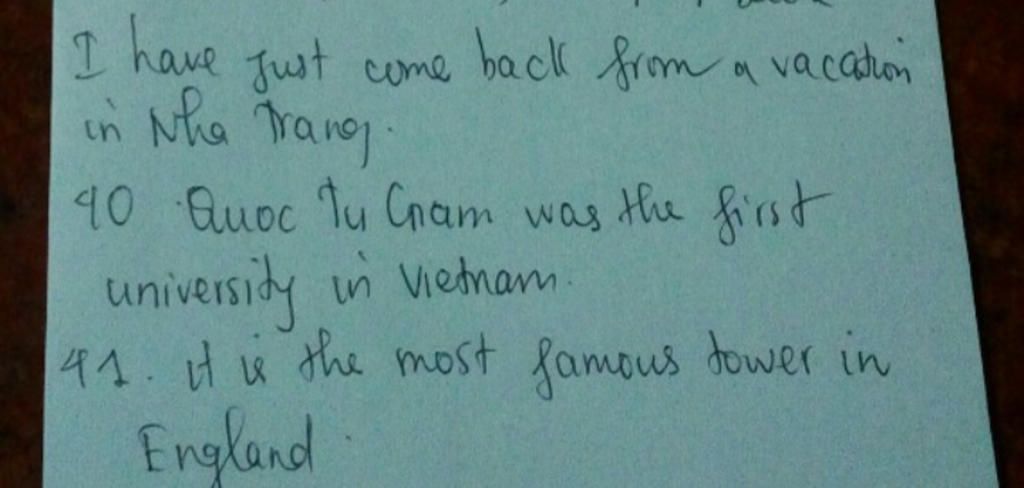 I have just come back from a vacation
in Nha Trang.
40 Quoc Tu Giam was the first
university in Vietnam.
41. it is the most famous tower in
England.